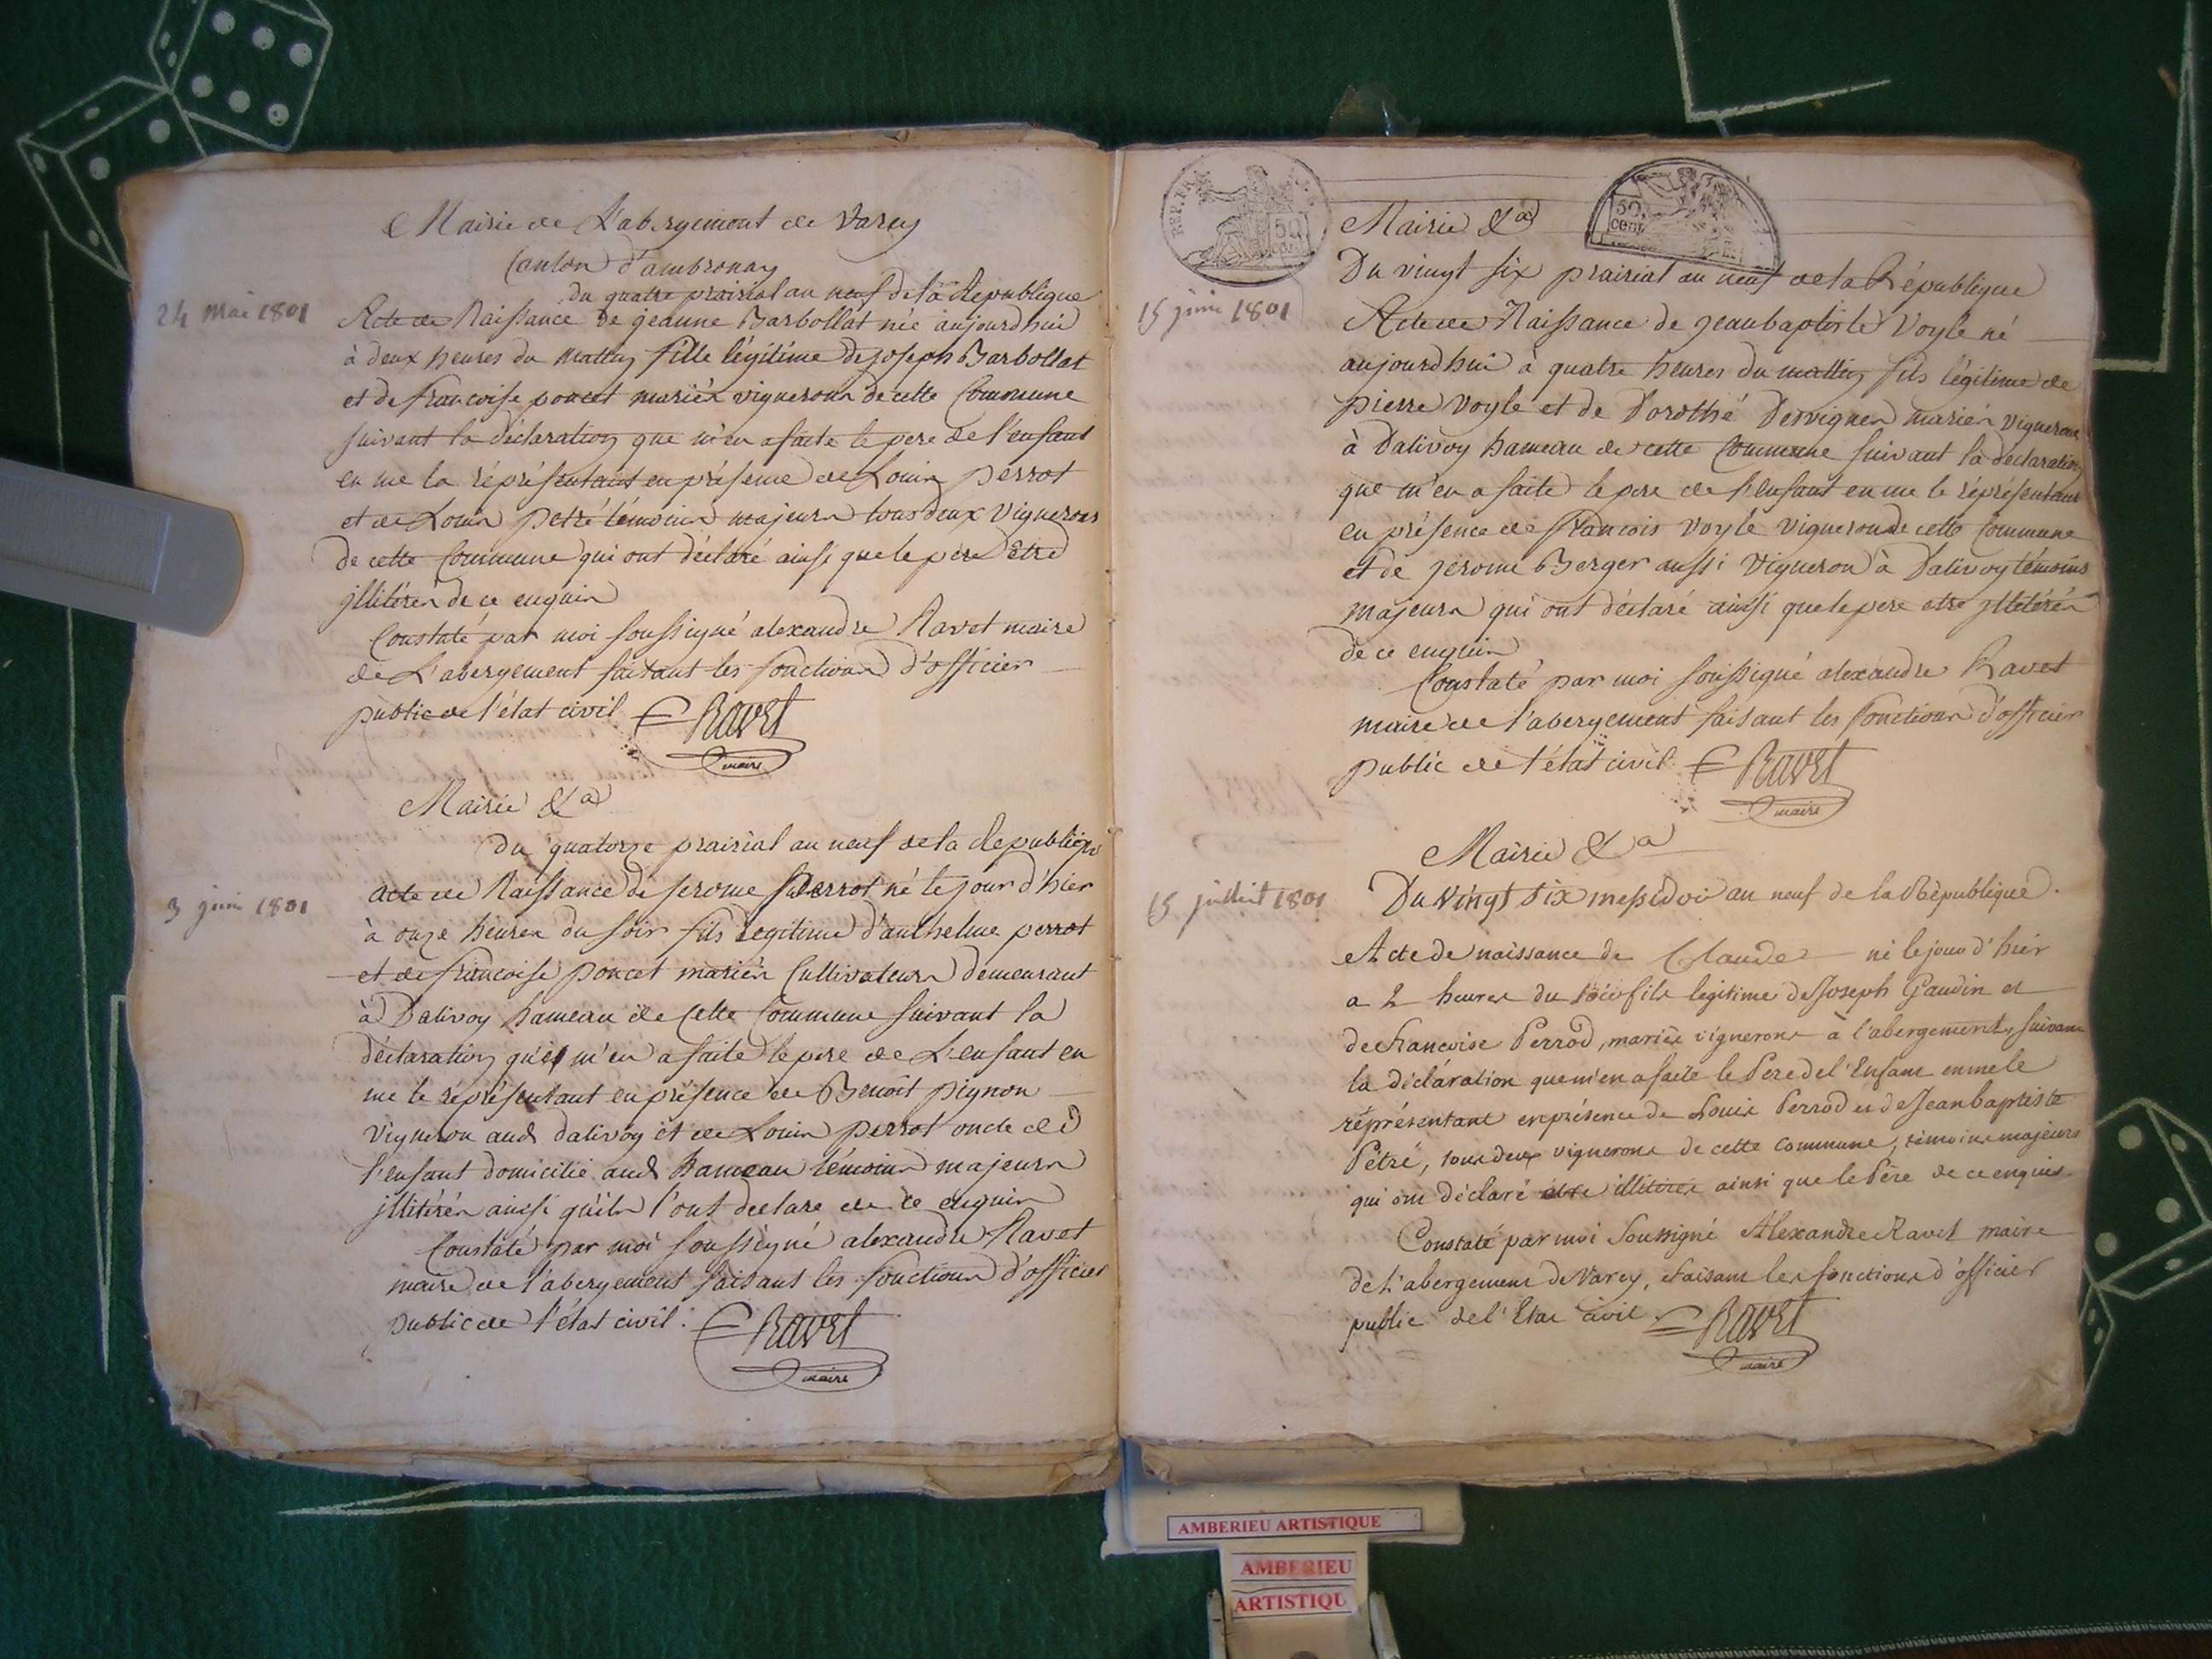 Mairie de L'abergement de Varey
Canton d'ambronay
du quatre prairial an neuf de la République
24 mai 1801
Acte de Naissance de jeanne Barbollat née aujourdhui
à deux heures du mattin fille légitime de joseph Barbollat
et de francoise poncet mariés vignerons de cette Commune
suivant la déclaration que m'en a faite le pere de l'enfant
en me la réprésentant en présence de Louis perrot
et de Louis petré témoins majeurs tous deux vignerons
de cette Commune qui ont déclaré ainsi que le père être
jllitérés de ce enquis
Constaté par moi soussigné alexandre Ravet maire
de L'abergement faisant les fonctions d'officier
public de l'état civil Ravet
maire
Mairie &a
Du quatorze prairial an neuf de la République
3 juin 1801
acte de Naissance de jerome perrot né le jour d'hier
à onze heures du soir fils légitime d'anthelme perrot
et de francoise poncet mariés Cultivateurs demeurant
à Dalivoy hameau de cette Commune suivant la
déclaration qu'en m'en a faite le pere de L'enfant en
me le réprésentant en présence de Benoit pignon
vigneron aud dalivoy et de Louis perrot oncle de
l'enfant domicilié aud hameau témoins majeurs
jllitérés ainsi qu'ils l'ont declaré de ce enquis
Constaté par moi soussigné alexandre Ravet
maire de l'abergement faisant les fonctions d'officier
public de l'état civil. Ravet
maire
REP. FRA
50
50
cent
Mairie &a
Du vingt six prairial an neuf de la République
15 juin 1801
Acte de Naissance de jean baptiste Voyle né
aujourdhui à quatre heures du mattin fils légitime de
pierre Voyle et de Dorothé Dervignes mariés vignerons
à Dalivoy hameau de cette Commune suivant la déclaration
que m'en a faite le pere de l'enfant en me le réprésentant
en présence de francois Voyle vigneron de cette Commune
et de jerome Berger aussi vigneron à Dalivoy témoins
majeurs qui ont déclaré ainsi que le pere etre jllitérés
de ce enquis
Constaté par moi soussigné alexandre Ravet
maire de l'abergement faisant les fonctions d'officier
public de l'état civil Ravet
maire
Mairie &a
15 juillet 1801
Du Vingt Six messidor an neuf de la République.
Acte de naissance de Claude né le jour d'hier
a 2 heures du soir fils legitime de Joseph Gaudin et
de francoise Perrod, mariés vignerons à l'abergement, suivant
la déclaration que m'en a faite le Pere de l'Enfant en me le
représentant en présence de Louis Perrod et de Jean baptiste
Pétré, tous deux vignerons de cette Commune, témoins majeurs
qui ont déclaré être illitérés ainsi que le Père de ce enquis
Constaté par moi Soussigné Alexandre Ravet maire
de L'abergement de Varey, faisant les fonctions d'officier
public de l'Etat civil. Ravet
maire
AMBERIEU ARTISTIQUE
AMBERIEU
ARTISTIQU